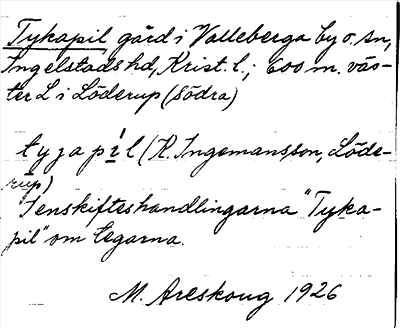 Tykapil gård i Valleberga by o. sn,
Ingelstads hd, Krist. l.; 600 m. väs-
ter L i Löderup (södra)
tyjapíl (R. Ingemansson, Löde-
rup)
"I enskifteshandlingarna "Tyka-
pil" om tegarna.
M. Areskoug 1926